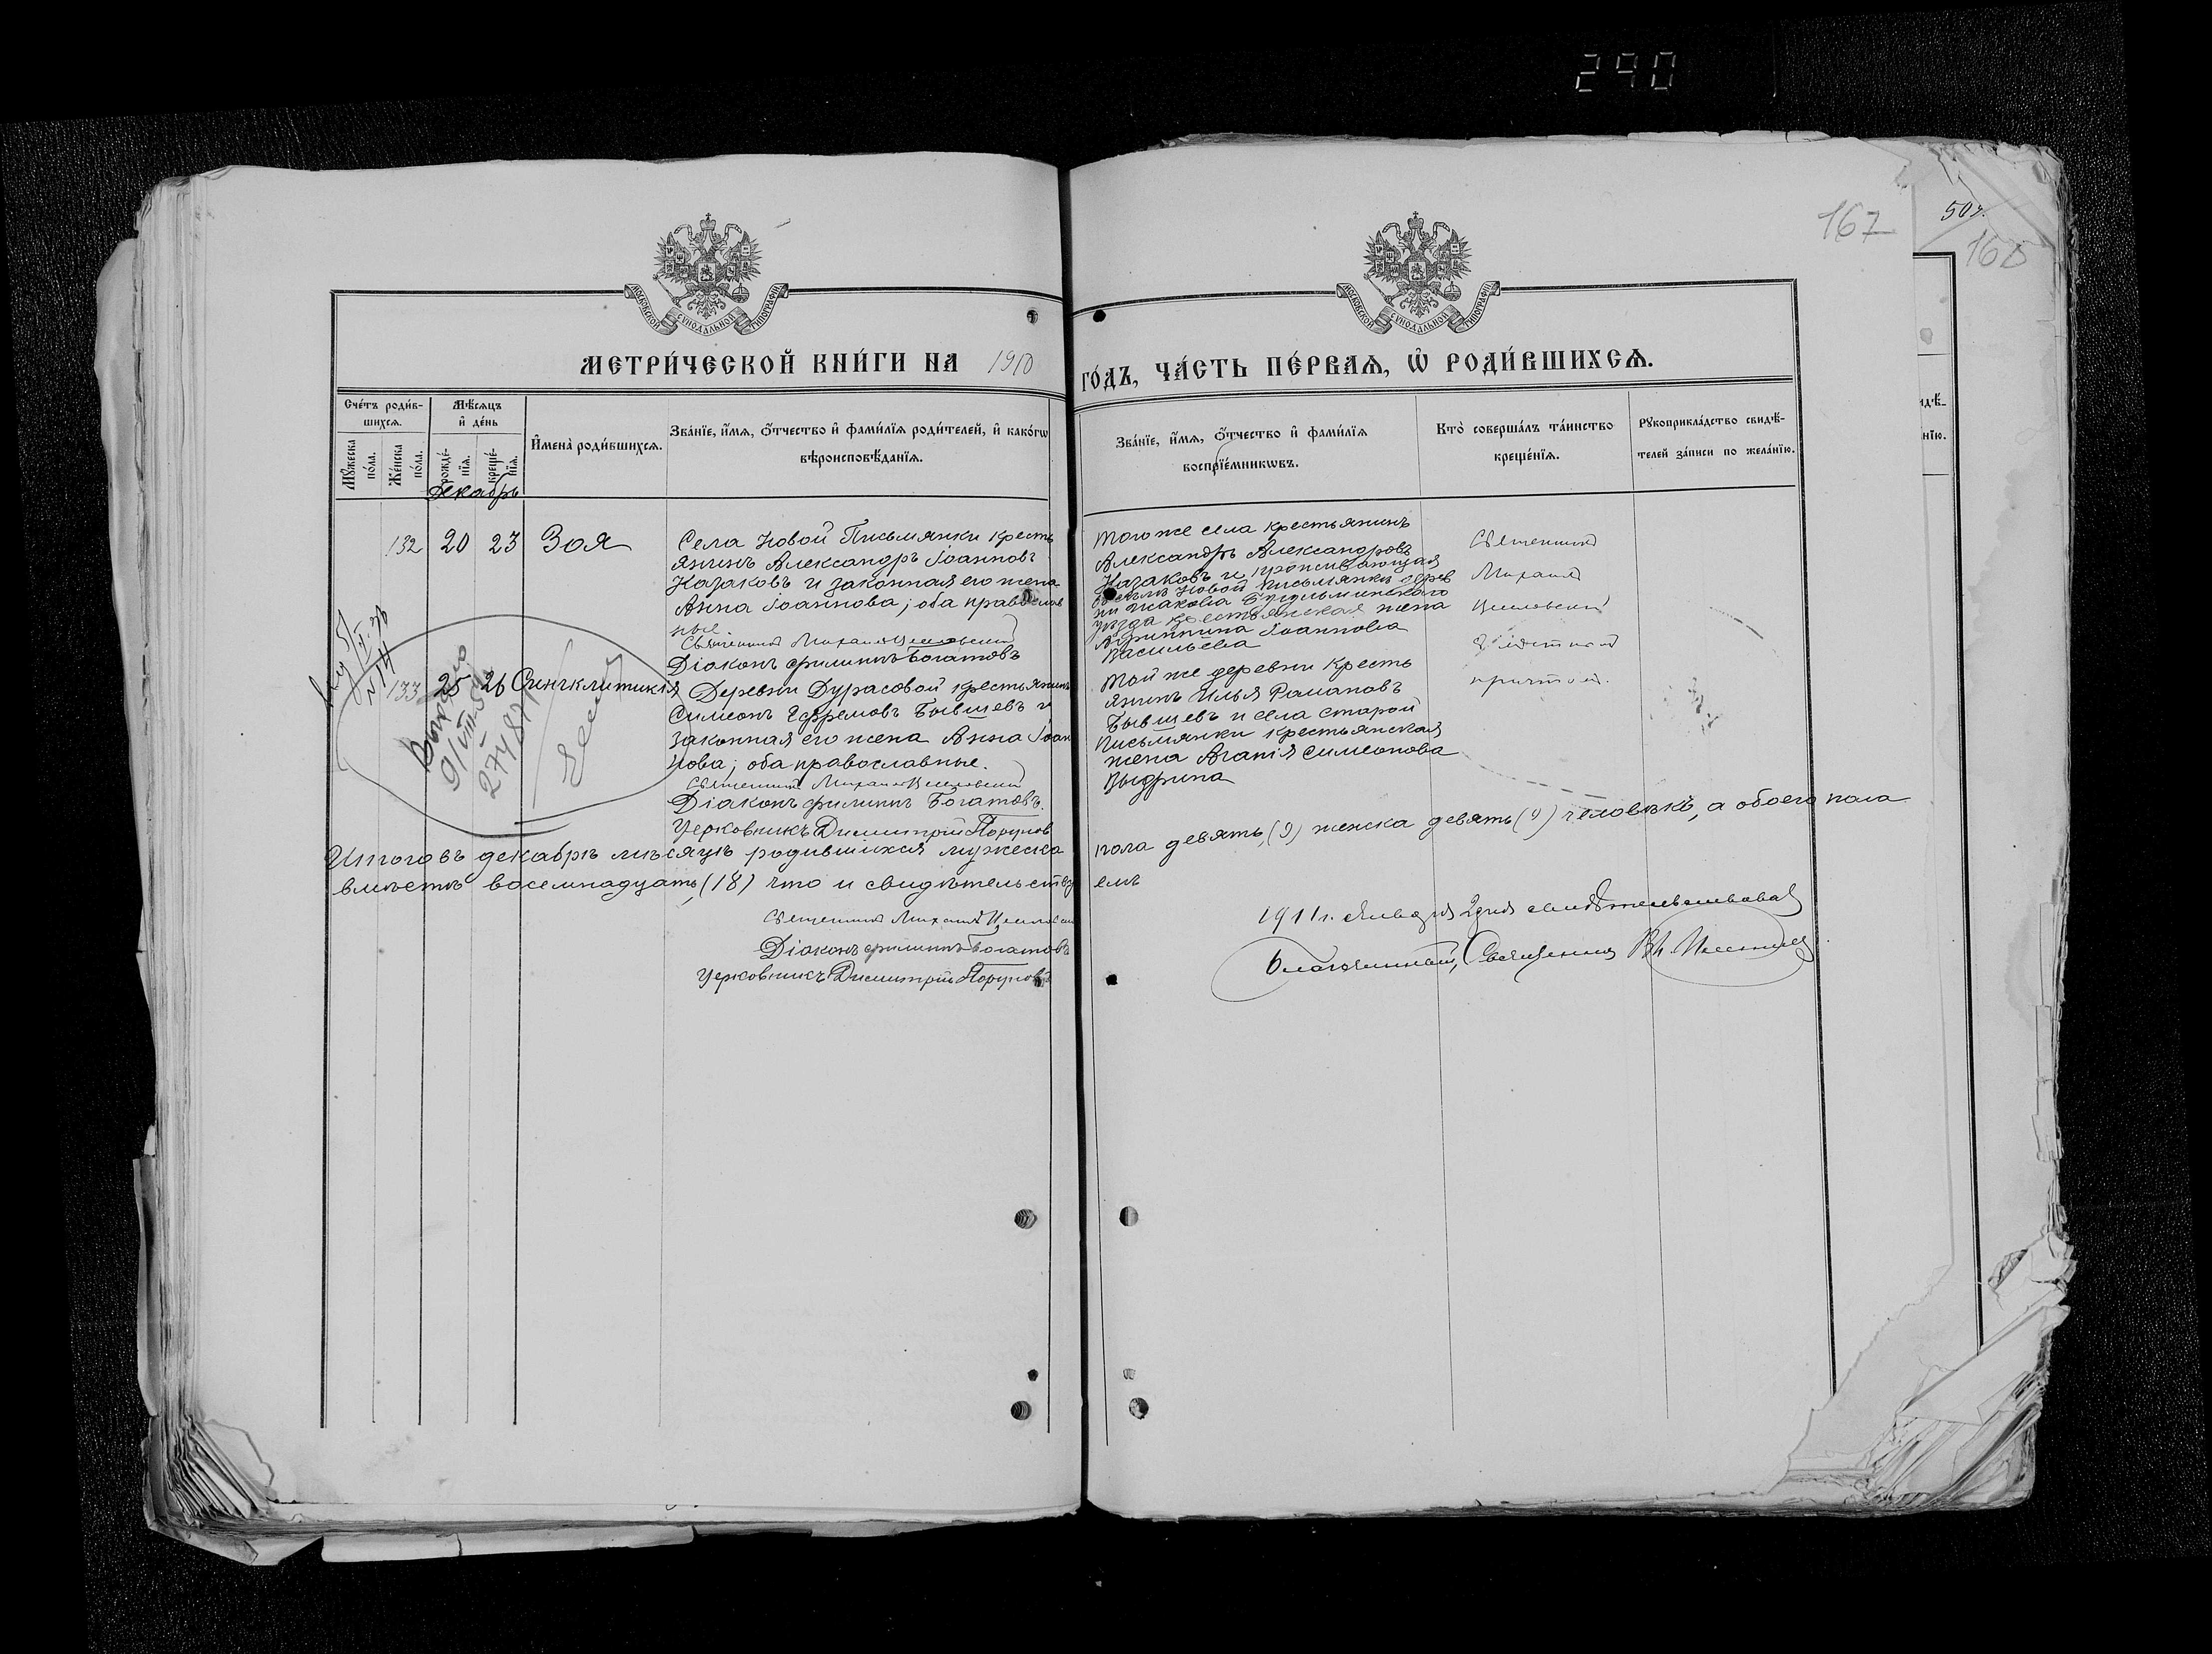 290
167
50 г.
160
МОСКОВСКОЙ СѴНОДАЛЬНОЙ ТИПОГРАФІИ
МОСКОВСКОЙ СѴНОДАЛЬНОЙ ТИПОГРАФІИ
МЕТРИ́ЧЕСКОЙ КНИ́ГИ НА 1910
ГО́ДЪ, ЧА́СТЬ ПЕ́РВАѦ, Ѡ҆ РОДИ́ВШИХСѦ.
Сче́тъ роди́в-
шихсѧ.
Мꙋ́жеска по́ла.
Же́нска по́ла.
Мѣ́сѧцъ
и҆ де́нь
рожде́-нїѧ.
креще́-нїѧ.
И҆мена̀ роди́вшихсѧ.
Зва́нїе, и҆́мѧ, ѻ҆́тчество и҆ фами́лїѧ роди́телей, и҆ како́гѡ
вѣроисповѣ́данїѧ.
Зва́нїе, и҆́мѧ, ѻ҆́тчество и҆ фами́лїѧ
воспрїе́мникѡвъ.
Кто̀ соверша́лъ та́инство
креще́нїѧ.
Рꙋкоприкла́дство свидѣ́-
телей за́писи по жела́нїю.
Декабрь
132 20 23 Зоя
Села Новой Письмянки кресть
янинъ Александръ Іоанновъ
Казаковъ и законная его жена
Анна Іоаннова; оба православ
ные.
Священникъ Михаилъ
Діаконъ Филиппъ Богатовъ
Того же села крестьянинъ
Александръ Александровъ
Казаковъ и проживающая
въ селѣ Новой Письмянки дерев
ни Бугульминскаго
уѣзда крестьянская жена
Агриппина Іоаннова
Васильева
Священникъ
Михаилъ
причтомъ.
133 25 26 Синклитикія
Деревни Дурасовой крестьянинъ
Симеонъ Ефремовъ Бывшевъ и
законная его жена Анна Іоан
нова; оба православные.
Священникъ Михаилъ
Діаконъ Филиппъ Богатовъ.
Церковникъ Димитрій
Той же деревни кресть
янинъ Илья Романовъ
Бывшевъ и села Старой
Письмянки крестьянская
жена Агапія Симеонова
Выдрина
Итого въ декабрѣ мѣсяцѣ родившихся мужеска
пола девять (9) женска девять (9) человѣкъ, а обоего пола
вмѣстѣ восемнадцать (18) что и свидѣтельству
емъ
Священникъ Михаилъ
Діаконъ Филиппъ Богатовъ
Церковникъ Димитрій
1911 г. января 2 дня свидѣтельствовалъ
Благочинный, Священникъ